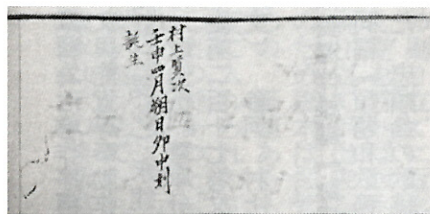 村上賢次
壬申四月朔日卯中刻
誕生